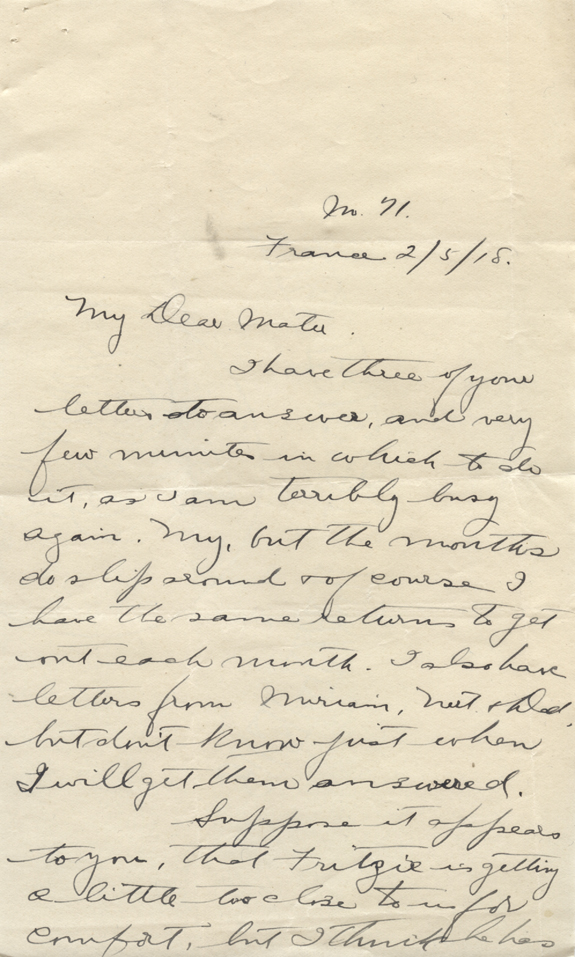 No. 71.
France 2/5/18.
My Dear Mater.
I have three of your
letters to answer, and very
few minutes in which to do
it, as I am terribly busy
again. My, but the months
do slip around & of course I
have the same returns to get
out each month. I also have
letters from Miriam, & Dad,
but don't know just when
I will get them answered.
Suppose it appears
to you, that Fritzie is getting
a little too close to us for
comfort, but I think he has